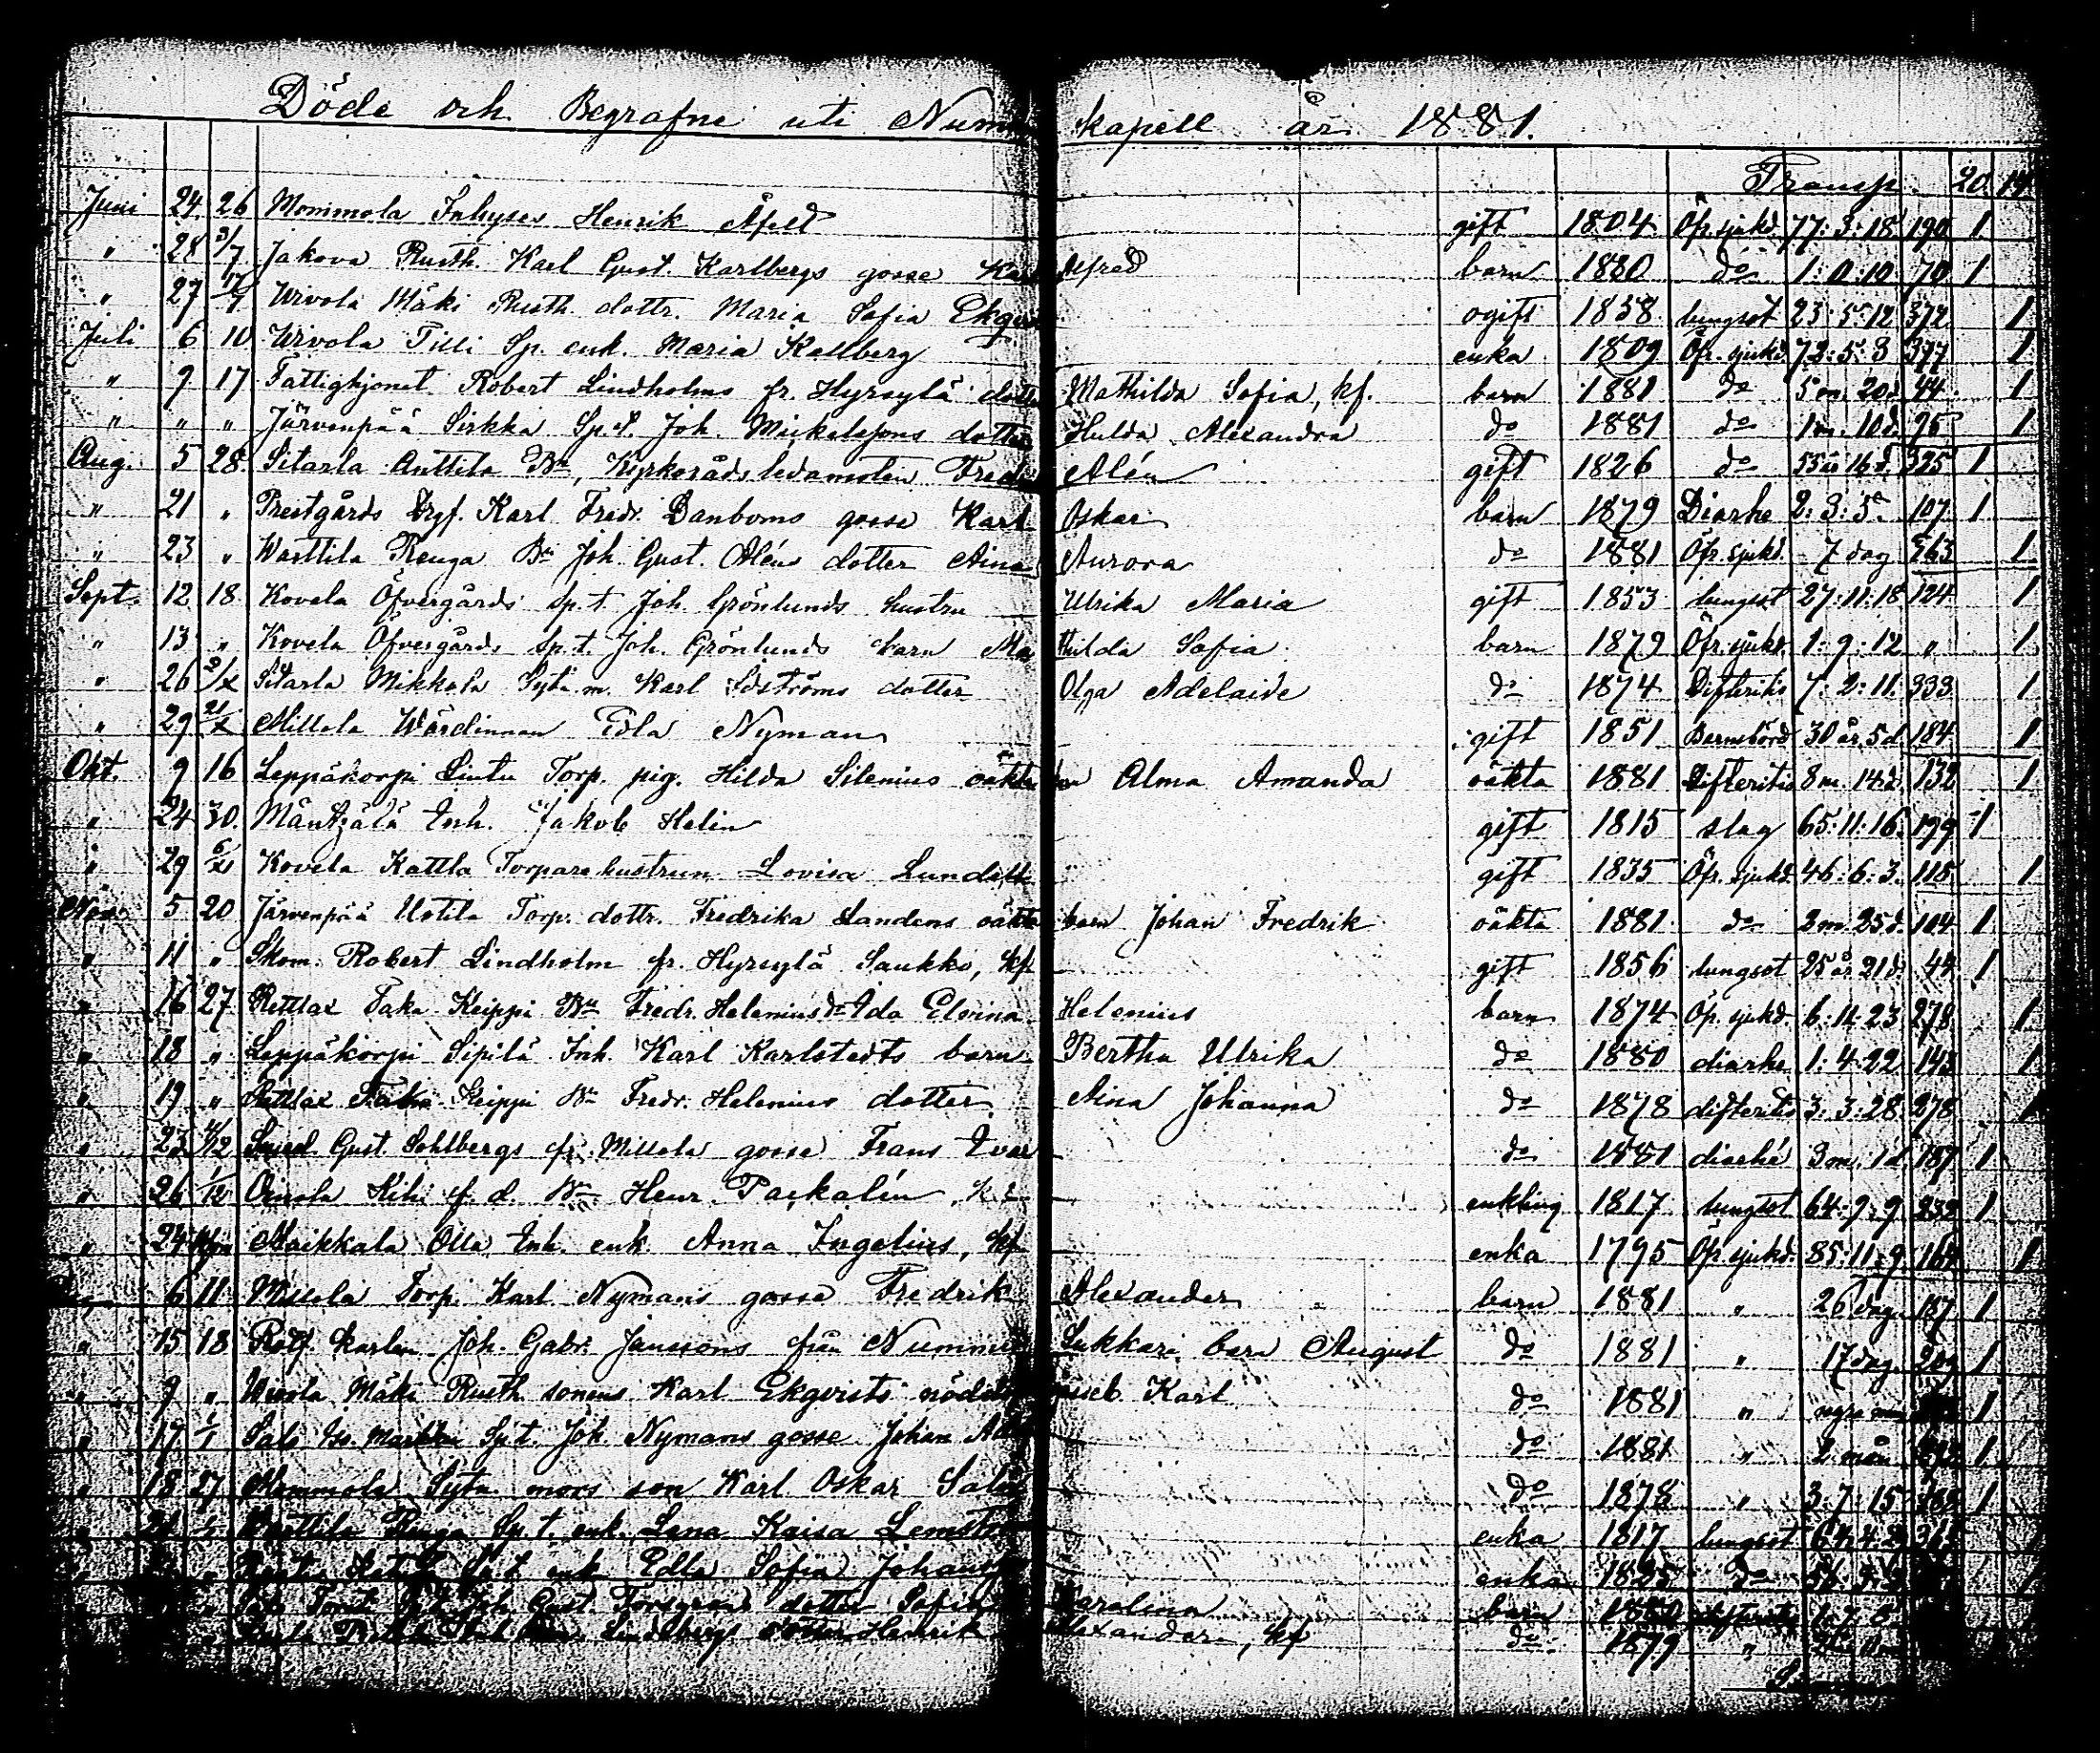 Döde och Begrafne uti Numm kapell år 1881.
Transp. 20 14
Juni 24 26 Mommola Inhyses Henrik Åfelt gift 1804 Öfr. sjukd. 77: 3: 18 190 1
" 28 3/7 Jakova Rusth. Karl Gust. Karlbergs gosse Kar Alfred barn 1880 do 1: 0: 10 70 1
" 27 17/7 Urvola Mäki Rusth. dottr. Maria Sofia Ekqv ogift 1858 lungsot 23: 5: 12 372 1
Juli 6 10 Urvola Tilli Sp. enk. Maria Kallberg enka 1809 Öfr. sjukd. 72: 5: 3 377 1
" 9 17 Fattighjonet Robert Lindholms fr. Hyrsylä dotter Mathilda Sofia, kf. barn 1881 do 5 m. 20 d. 44 1
" " " Järvenpää Sirkka Sp. t. Joh. Mickelssons dotter Hulda Alexandra do 1881 do 1 m. 10 d. 95 1
Aug. 5 28 Sitarla Anttila Bn, Kyrkorådsledamoten Fredr Alén gift 1826 do 55 år 16 d. 325 1
" 21 " Prestgårds Karl Fredr. Danboms gosse Karl Oskar barn 1879 Diarhe 2: 3: 5 107 1
" 23 " Warttila Renga Bn Joh. Gust. Aléns dotter Aina Aurora do 1881 Öfr. sjukd. 7 dag 363 1
Sept. 12 18 Kovela Öfvergårds Sp. t. Joh. Grönlunds hustru Ulrika Maria gift 1853 lungsot 27: 11: 18 124 1
" 13 " Kovela Öfvergårds Sp. t. Joh. Grönlunds barn Ma thilda Sofia barn 1879 Öfr. sjukd. 1: 9: 12 " 1
" 26 2/X Sitarla Mikkola Sytn. m. Karl Idströms dotter Olga Adelaide do 1874 Difteritis 7: 2: 11 333 1
" 29 21/X Millola Wärdinnan Edla Nyman gift 1851 Barnsbörd 30 år, 5 d. 184 1
Okt. 9 16 Leppäkorpi Lintu Torp. pig. Hilda Silenius oäkta Alma Amanda oäkta 1881 Difteritis 8 m. 14 d. 132 1
" 24 30 Mäntzälä Inh. Jakob Helin gift 1815 slag 65: 11: 16 199 1
" 29 6/XI Kovela Kattla Torparehustrun Lovisa Lundstr gift 1835 Öfr. sjukd. 46: 6: 3 115 1
Nov. 5 20 Järvenpää Uotila Torp. dottr. Fredrika Landens oäkta barn Johan Fredrik oäkta 1881 do 2 m. 25 d. 104 1
" 11 " Skom. Robert Lindholm fr. Hyrsylä Saukko, kf. gift 1856 lungsot 25 år 21 d. 44 1
" 16 27 Rettlax Taka Keippi Bn Fredr. Helenius dr Ida Elvina Helenius barn 1874 Öfr. sjukd. 6: 11: 23 278 1
" 18 " Leppäkorpi Sipilä Inh. Karl Karlstedts barn Bertha Ulrika do 1880 diarhe 1: 4: 22 143 1
" 19 " Rettlax Taka Keippi Bn Fredr. Helenius dotter Aina Johanna do 1878 difteritis 3: 3: 28 278 1
" 23 4/12 Smed. Gust. Sohlbergs fr. Millola gosse Frans Ivar do 1881 diarhé 3 m. 1 d. 187 1
" 26 1/12 Oinola Kihi f. d. Bn Henr. Packalén enkling 1817 lungsot 64: 9: 9 232 1
" 24 Maikkala Olla Inh. enk. Anna Ingelius, kf. enka 1795 Öfr. sjukd. 85: 11: 9 164 1
" 6 11 Millola Torp. Karl Nymans gosse Fredrik Alexander barn 1881 " 26 dag 187 1
" 15 18 Rotf. karlen Joh. Gabr. Janssons från Nummi Sukkari barn August do 1881 " 17 dag 209 1
" 9 " Urvola Mäki Rusth. sonens Karl Ekqvists nöddöpt gosseb. Karl do 1881 " 1
" 17 1/1 Salo Iso Maikku Sp. t. Joh. Nymans gosse Johan do 1881 " 2 mån 1
" 18 27 Mommola Sytn. mors son Karl Oskar Salo do 1878 " 3: 7: 15 1
Warttila Renga Sp. t. enk. Lena Kaisa Lemstr enka 1817 lungsot 64: 4: 2
enk Edla Sofia Johans enka 1825 do 56
Joh. Gust. dotter Sofia Karolina barn 1880 difteritis
Lindbergs Henrik Alexander, kf do 1879 "